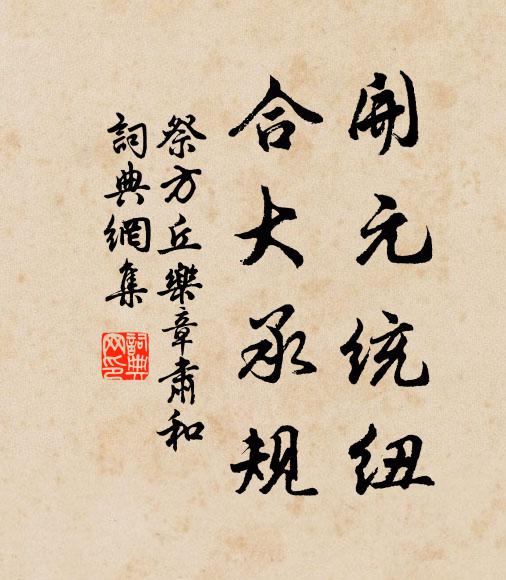 開元統紐
合大承規
祭方丘樂章肅和
詞典網集
詞典
网印